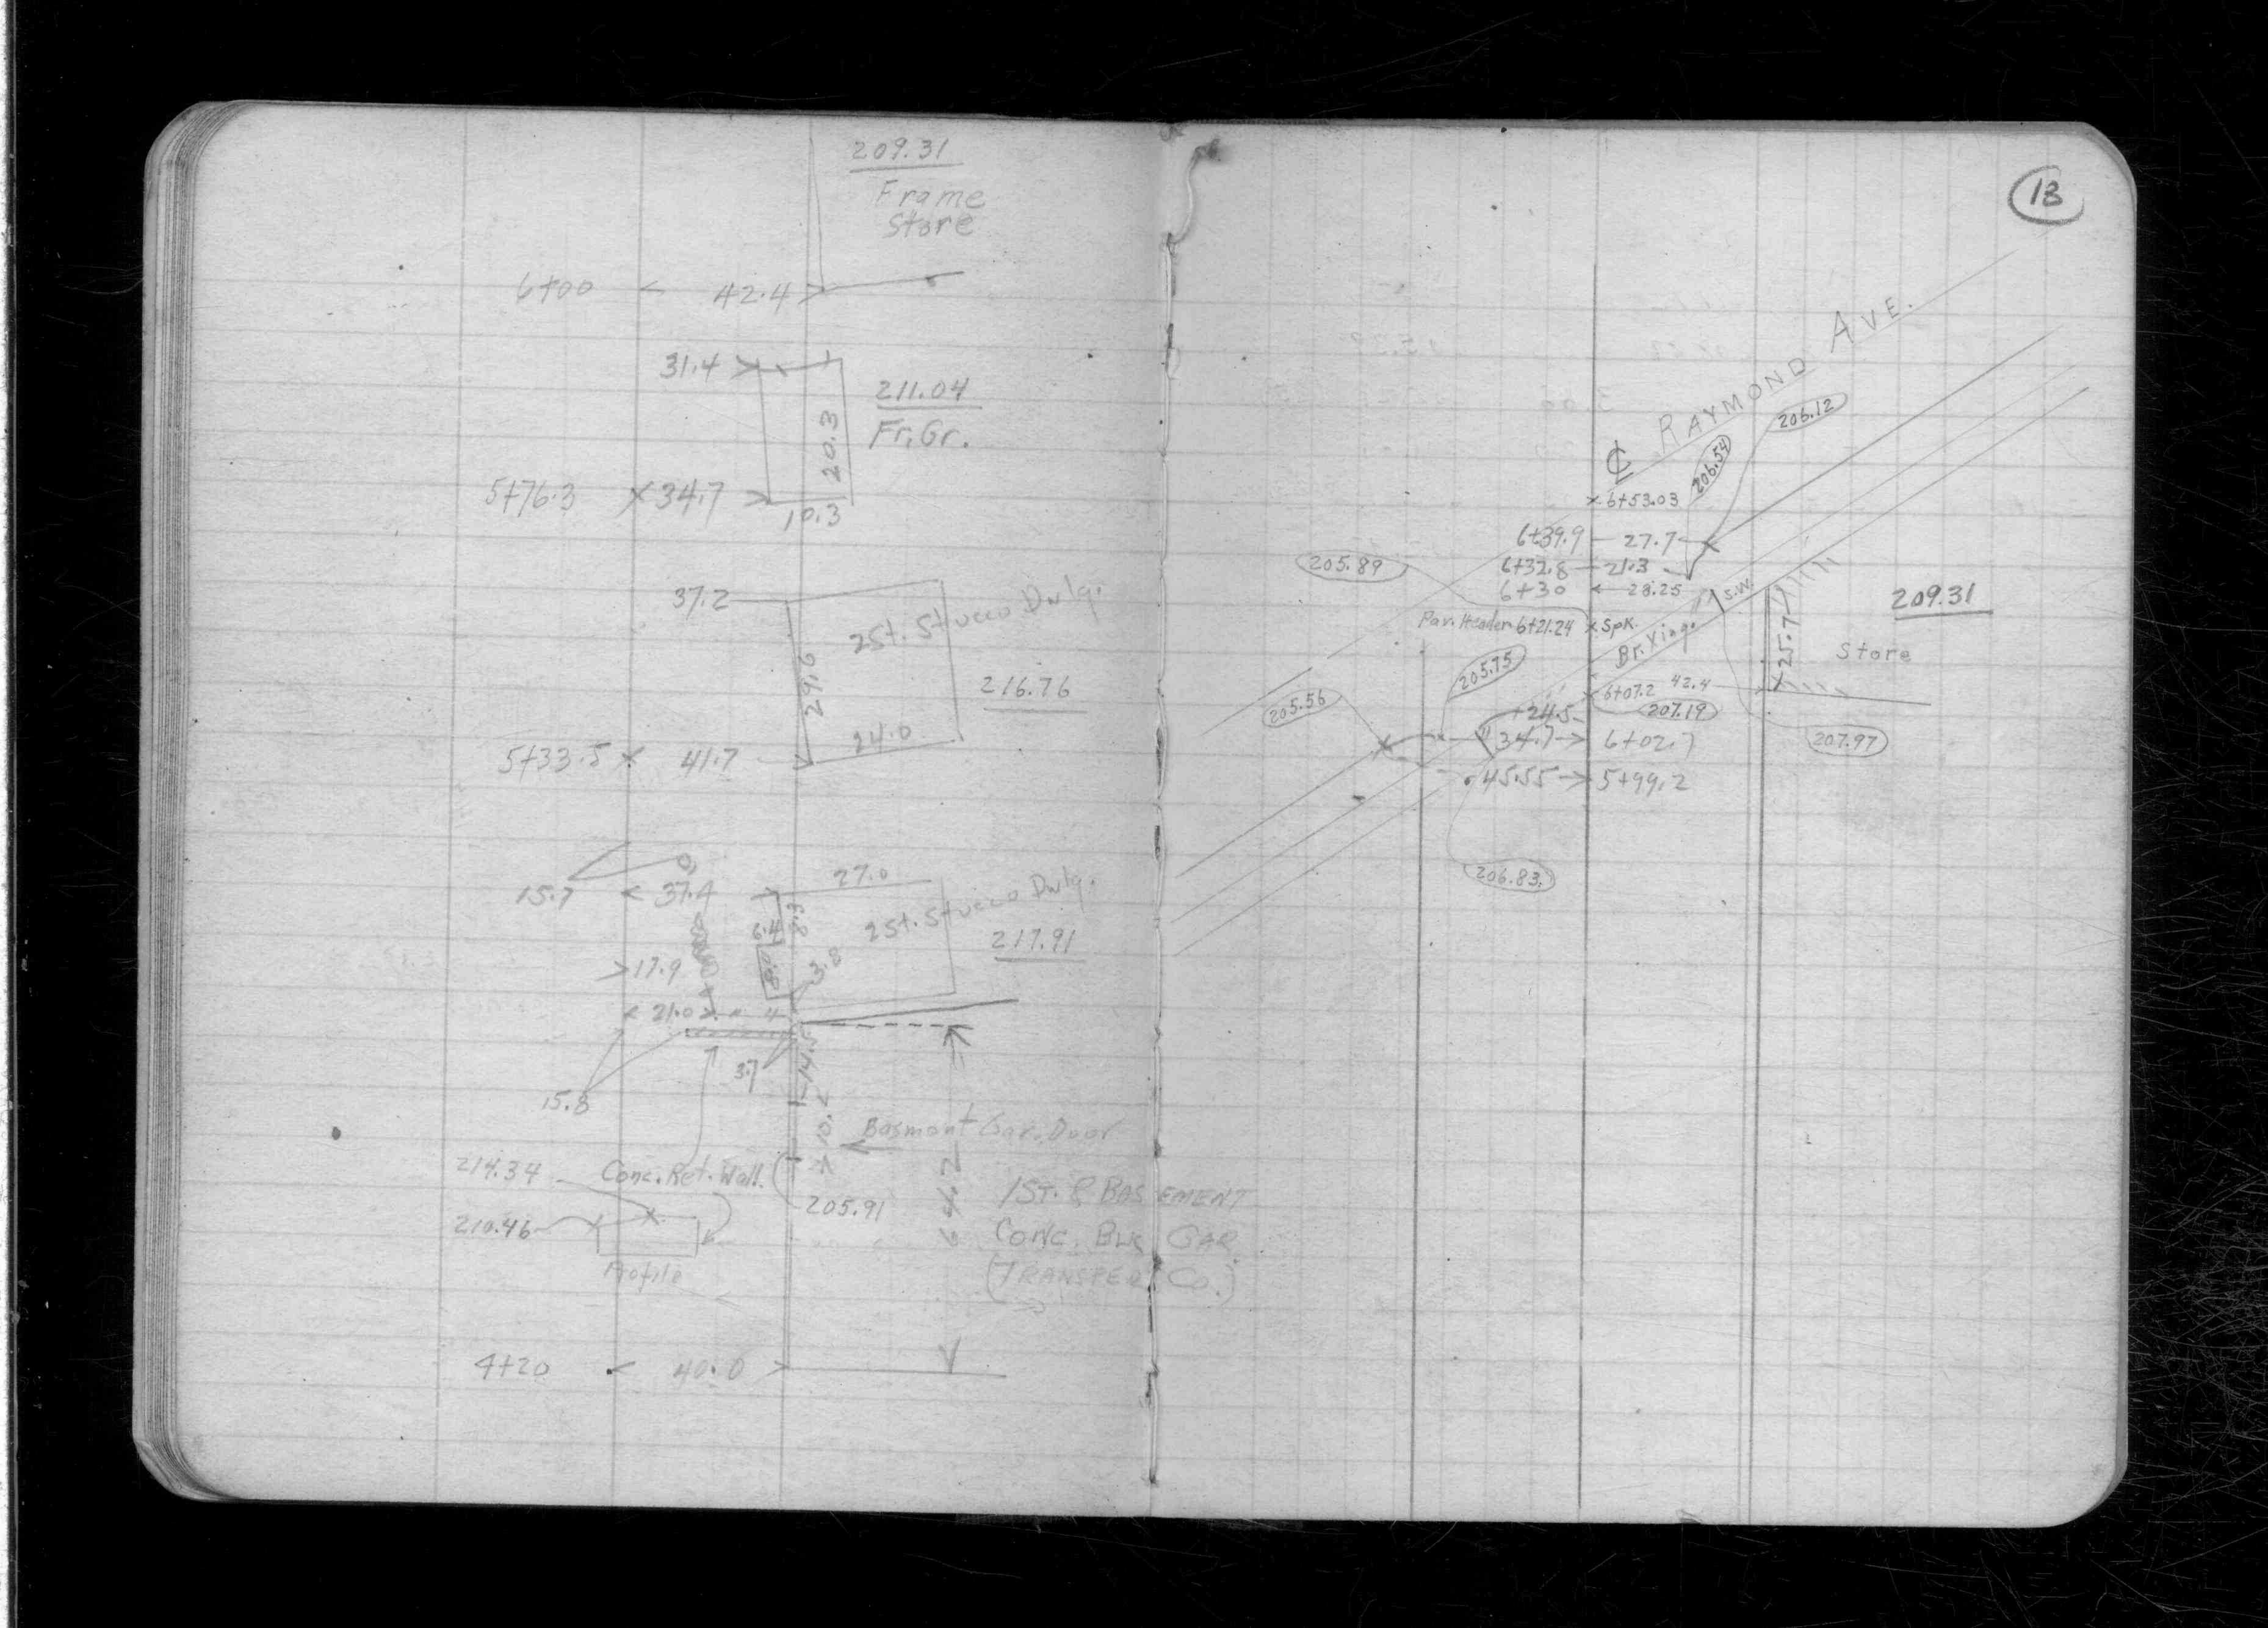 209.31
Frame
Store
6+00 < 42.4 >
31.4
211.04
Fr. Gr.
20.3
5+76.3 x 34.7
10.3
37.2
2 St. Stucco Dwlg.
29.6
216.76
24.0
5+33.5 x 41.7
27.0
15.7 < 37.4
6.4
8.3
2 St. Stucco Dwlg.
217.91
3.8
> 17.9
< 21.0 >
14.5
3.7
15.8
10.2
Basment Gar. Door
214.34
Conc. Ret. Wall.
205.91
210.46
Profile
1 St. & BASEMENT
CONC. BLK GAR.
(TRANSFER CO.)
4+20 < 40.0 >
13
RAYMOND AVE.
℄
206.12
206.54
x 6+53.03
6+39.9 27.7
205.89
6+32.8 21.3
6+30 < 28.25
S.W.
209.31
Par. Header 6+21.24 x Spk.
Br. Xing.
25.7
Store
205.75
6+07.2 42.4
205.56
+24.5
207.19
34.7 > 6+02.7
207.97
45.55 > 5+99.2
206.83